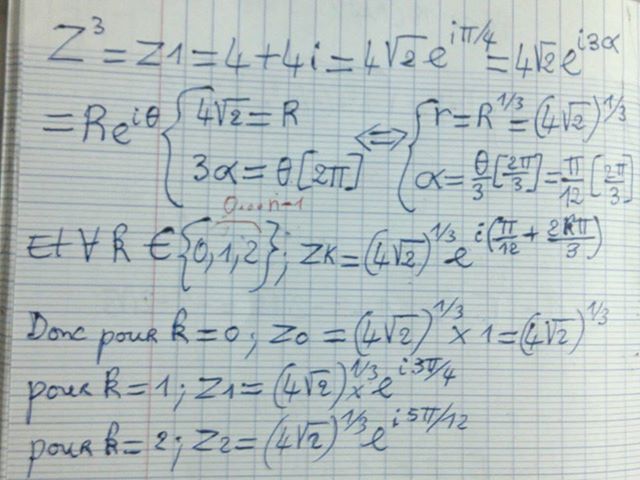 Z³ = Z1 = 4 + 4i = 4√2 e^{iπ/4} = 4√2 e^{i3α}
= Re^{iθ} { 4√2 = R ⟺ { r = R^{1/3} = (4√2)^{1/3}
3α = θ [2π] α = θ/3 [2π/3] = π/12 [2π/3]
0...n-1
Et ∀ k ∈ {0,1,2} ; Zk = (4√2)^{1/3} e^{i(π/12 + 2kπ/3)}
Donc pour k = 0 ; Z0 = (4√2)^{1/3} × 1 = (4√2)^{1/3}
pour k = 1 ; Z1 = (4√2)^{1/3} × e^{i3π/4}
pour k = 2 ; Z2 = (4√2)^{1/3} e^{i5π/12}